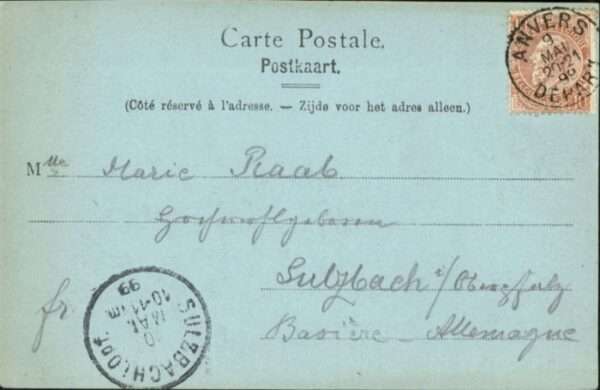 Carte Postale.
Postkaart.
(Côté réservé à l'adresse. — Zijde voor het adres alleen.)
ANVERS
9
MAI
99
DÉPART
Mlle Marie Raab
Hochwohlgeboren
Sulzbach i/Oberpfalz
Bavière - Allemagne
fr.
SULZBACH
10
MAI.
10-11
99